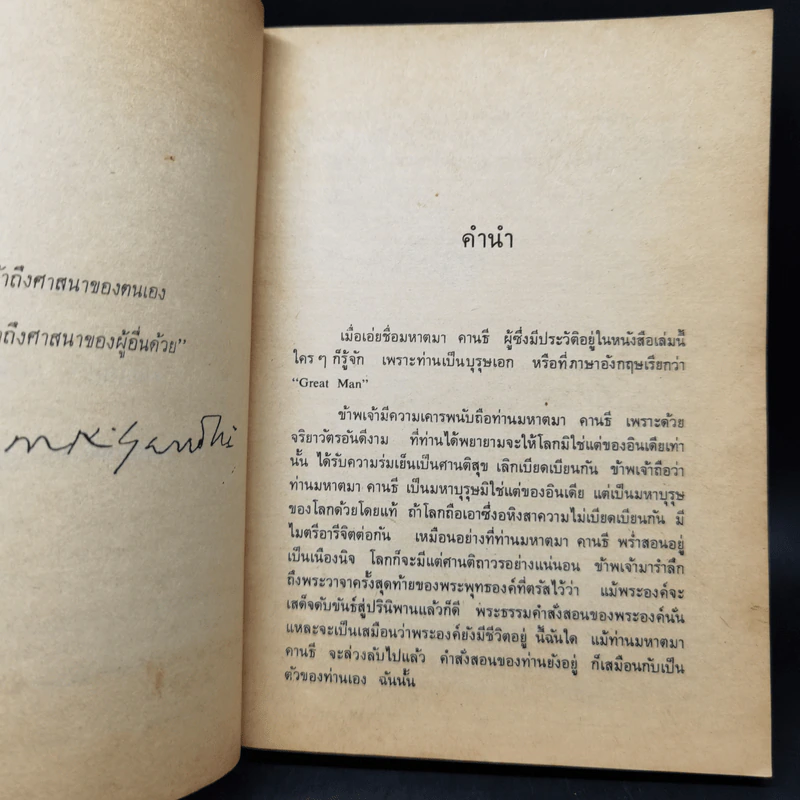 ถึงศาสนาของตนเอง
ถึงศาสนาของผู้อื่นด้วย”
mkgandhi
คำนำ
เมื่อเอ่ยชื่อมหาตมา คานธี ผู้ซึ่งมีประวัติอยู่ในหนังสือเล่มนี้
ใคร ๆ ก็รู้จัก เพราะท่านเป็นบุรุษเอก หรือที่ภาษาอังกฤษเรียกว่า
“Great Man”
ข้าพเจ้ามีความเคารพนับถือท่านมหาตมา คานธี เพราะด้วย
จริยาวัตรอันดีงาม ที่ท่านได้พยายามจะให้โลกมิใช่แต่ของอินเดียเท่า
นั้น ได้รับความร่มเย็นเป็นศานติสุข เลิกเบียดเบียนกัน ข้าพเจ้าถือว่า
ท่านมหาตมา คานธี เป็นมหาบุรุษมิใช่แต่ของอินเดีย แต่เป็นมหาบุรุษ
ของโลกด้วยโดยแท้ ถ้าโลกถือเอาซึ่งอหิงสาความไม่เบียดเบียนกัน มี
ไมตรีอารีจิตต่อกัน เหมือนอย่างที่ท่านมหาตมา คานธี พร่ำสอนอยู่
เป็นเนืองนิจ โลกก็จะมีแต่ศานติถาวรอย่างแน่นอน ข้าพเจ้ามารำลึก
ถึงพระวาจาครั้งสุดท้ายของพระพุทธองค์ที่ตรัสไว้ว่า แม้พระองค์จะ
เสด็จดับขันธ์สู่ปรินิพานแล้วก็ดี พระธรรมคำสั่งสอนของพระองค์นั่น
แหละจะเป็นเสมือนว่าพระองค์ยังมีชีวิตอยู่ นี้ฉันใด แม้ท่านมหาตมา
คานธี จะล่วงลับไปแล้ว คำสั่งสอนของท่านยังอยู่ ก็เสมือนกับเป็น
ตัวของท่านเอง ฉันนั้น